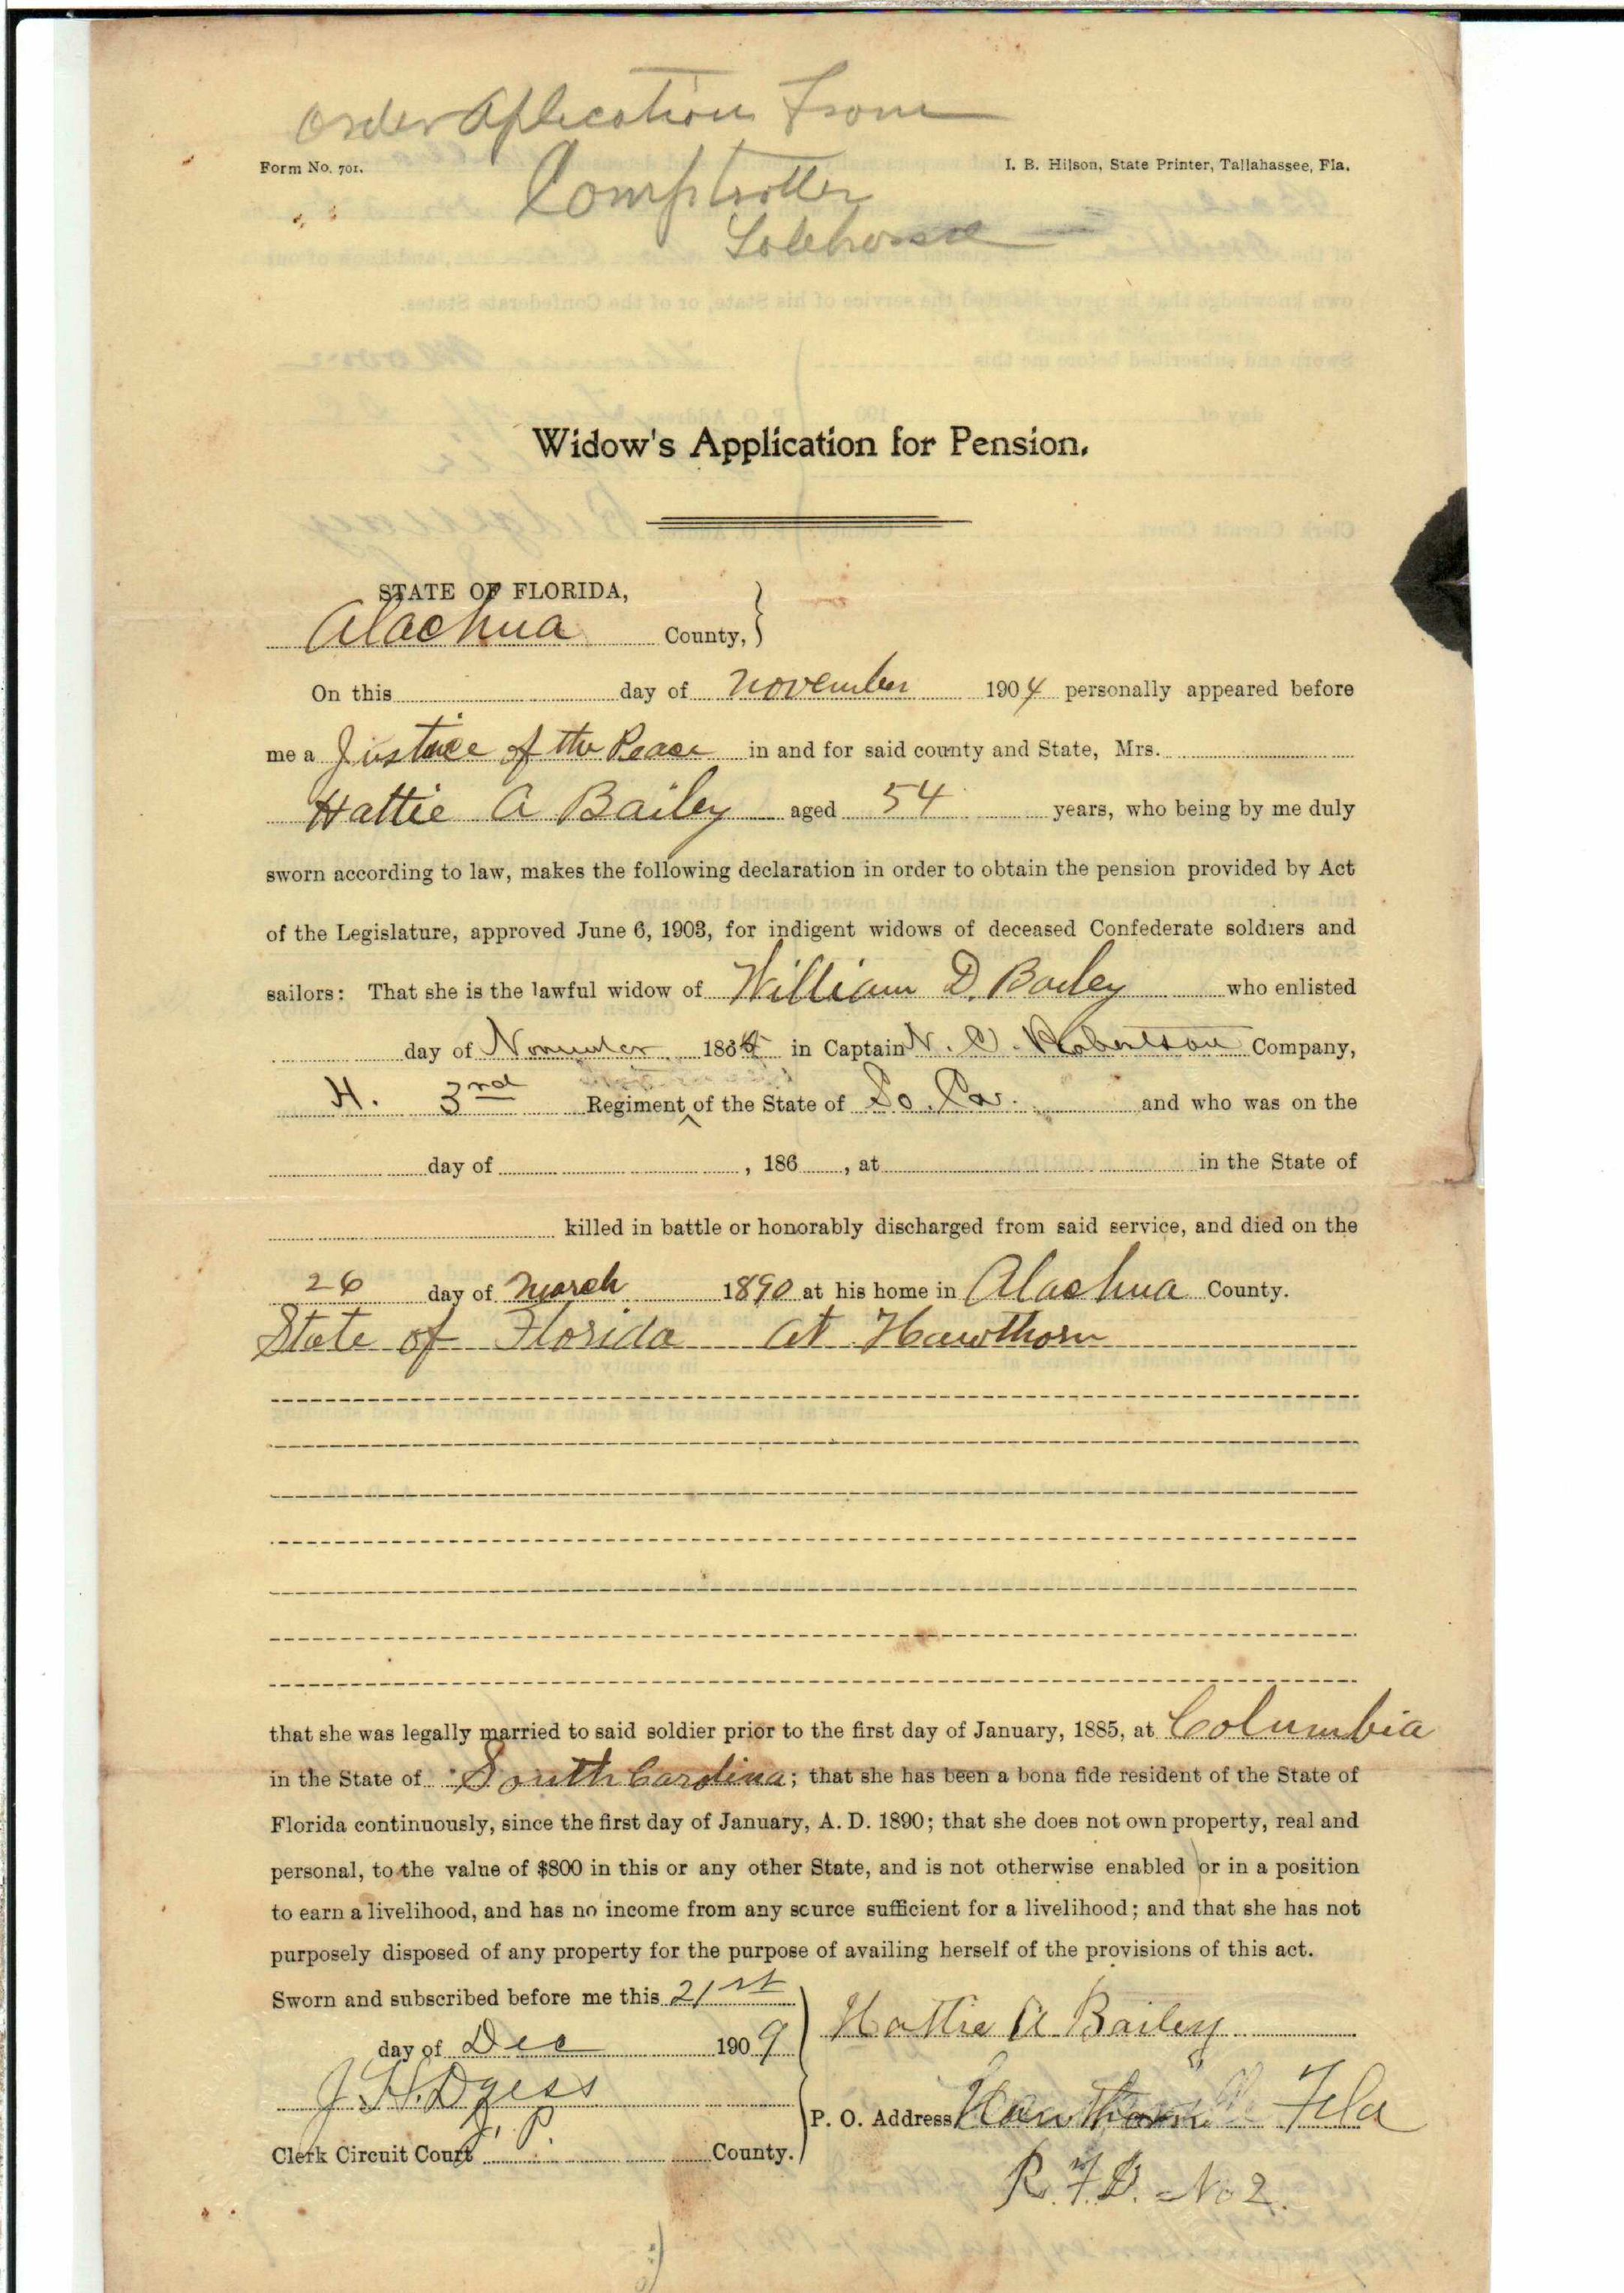 Order Aplication From
Form No. 701.
I. B. Hilson, State Printer, Tallahassee, Fla.
Comptroller
Widow's Application for Pension.
STATE OF FLORIDA,
Alachua County,
On this day of November 1904 personally appeared before
me a Justice of the Peace in and for said county and State, Mrs.
Hattie A Bailey aged 54 years, who being by me duly
sworn according to law, makes the following declaration in order to obtain the pension provided by Act
of the Legislature, approved June 6, 1903, for indigent widows of deceased Confederate soldiers and
sailors: That she is the lawful widow of William D. Bailey who enlisted
day of November 186 in Captain Robertson Company,
H. 3rd Regiment ^ of the State of So. Car. and who was on the
day of , 186 , at in the State of
killed in battle or honorably discharged from said service, and died on the
26 day of March 1890 at his home in Alachua County.
State of Florida at Hawthorn
that she was legally married to said soldier prior to the first day of January, 1885, at Columbia
in the State of South Carolina; that she has been a bona fide resident of the State of
Florida continuously, since the first day of January, A. D. 1890; that she does not own property, real and
personal, to the value of $800 in this or any other State, and is not otherwise enabled or in a position
to earn a livelihood, and has no income from any source sufficient for a livelihood; and that she has not
purposely disposed of any property for the purpose of availing herself of the provisions of this act.
Sworn and subscribed before me this 21st
day of Dec 1909
Hattie A Bailey
J. H. Dyess
P. O. Address Hawthorn Fla
J. P.
Clerk Circuit Court County.
R. F. D. No 2.